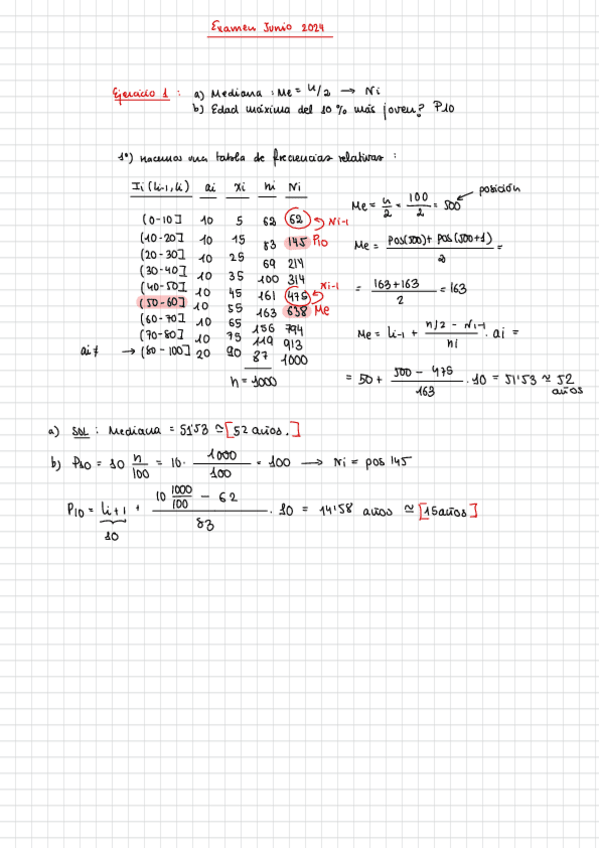 Examen Junio 2024
Ejercicio 1 : a) Mediana : Me = n/2 → Ni
b) Edad máxima del 10 % más joven? P10
1º) hacemos una tabla de frecuencias relativas :
Ii (li-1, li) ai xi ni Ni
(0-10] 10 5 62 62 Ni-1
(10-20] 10 15 83 145 P10
(20-30] 10 25 69 214
(30-40] 10 35 100 314
(40-50] 10 45 161 475 Ni-1
(50-60] 10 55 163 638 Me
(60-70] 10 65 156 794
(70-80] 10 75 119 913
ai ≠ → (80-100] 20 90 87 1000
n = 1000
Me = n/2 = 100/2 = 500 posición
Me = (pos(500) + pos(500+1))/2 =
= (163+163)/2 = 163
Me = li-1 + (n/2 - Ni-1)/ni · ai =
= 50 + (500 - 475)/163 · 10 = 51'53 ≃ 52 años
a) SOL : Mediana = 51'53 ≃ [52 años.]
b) P10 = 10 n/100 = 10 · 1000/100 = 100 → Ni = pos 145
P10 = li+1 + (10 1000/100 - 62)/83 · 10 = 14'58 años ≃ [15 años]
10